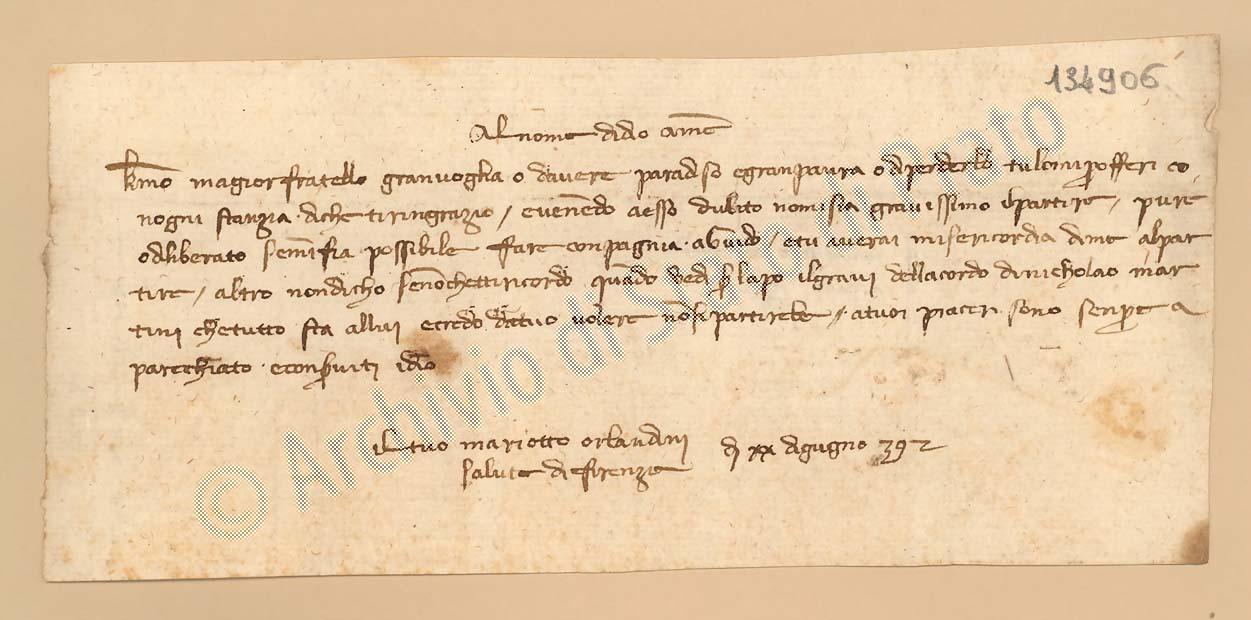 134906
Al nome didio ame
kmo magior fratello gran voglia o davere paradiso e gran paura o di perderlo tu lomi profferi co
nogni stanzia dicheti ringrazio / e venendo a esso dubito nomi sia gravissimo ilpartire / pure
o diliberato semi fia possibile fare conpagnia a Guido / e tu averai misericordia di me al par
tire / altro non dicho senoche tti ricordo quando vedi ser lapo il gravi dellacordo di nicholao mar
tini chetutto sta allui e credo datuo volere nosi partirebe / a tuoi piaceri sono senpre a
parechiato e conserviti idio
il tuo mariotto orlandini dì xx digugno 392
salute di firenze
© Archivio di Stato di Prato